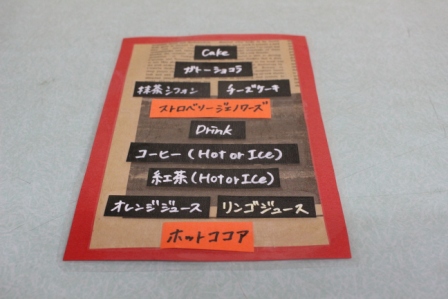 Cake
ガトーショコラ
抹茶シフォン チーズケーキ
ストロベリージェノワーズ
Drink
コーヒー (Hot or Ice)
紅茶 (Hot or Ice)
オレンジジュース リンゴジュース
ホットココア